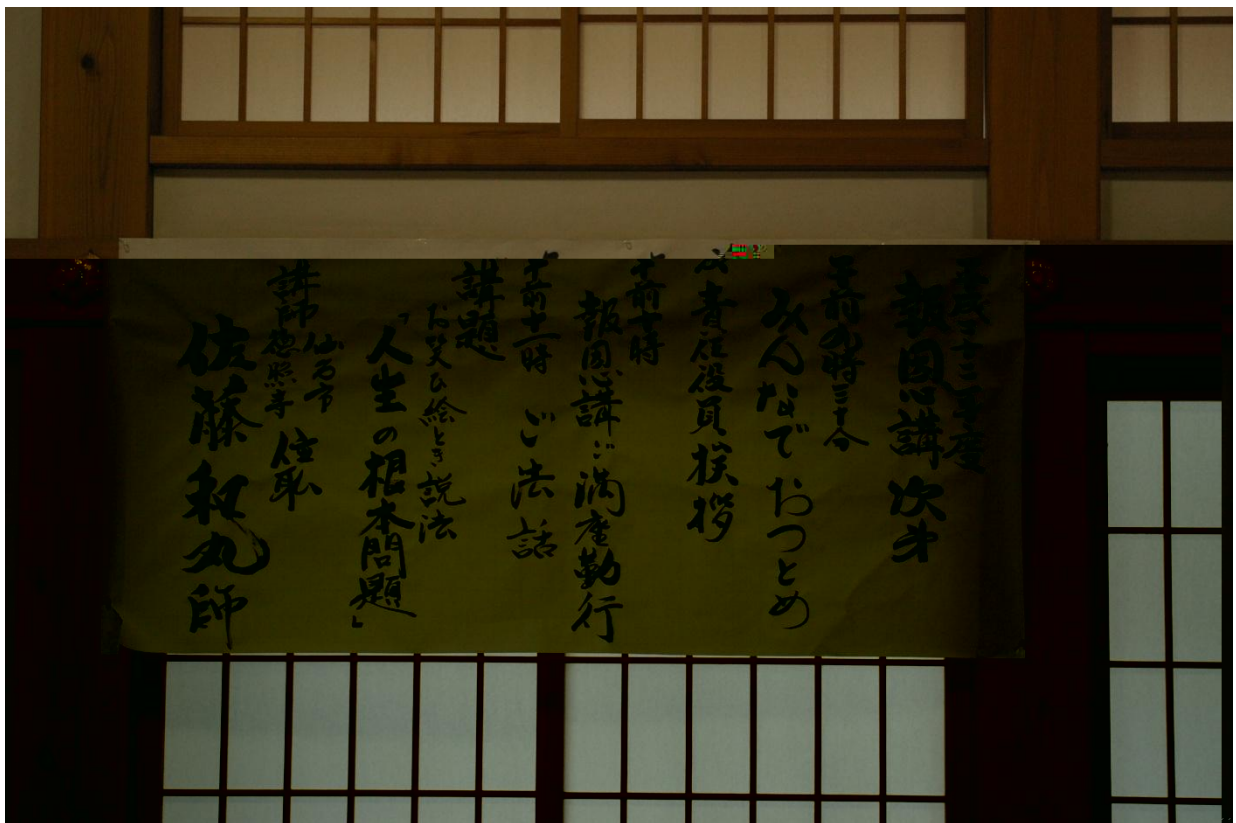 平成二十三年度
報恩講次第
午前九時三十分
みんなでおつとめ
責任役員挨拶
午前十時
報恩講ご満座勤行
午前十一時 ご法話
講題
お笑ひ絵とき説法
「人生の根本問題」
講師
仙台市
徳照寺 住職
佐藤和丸師